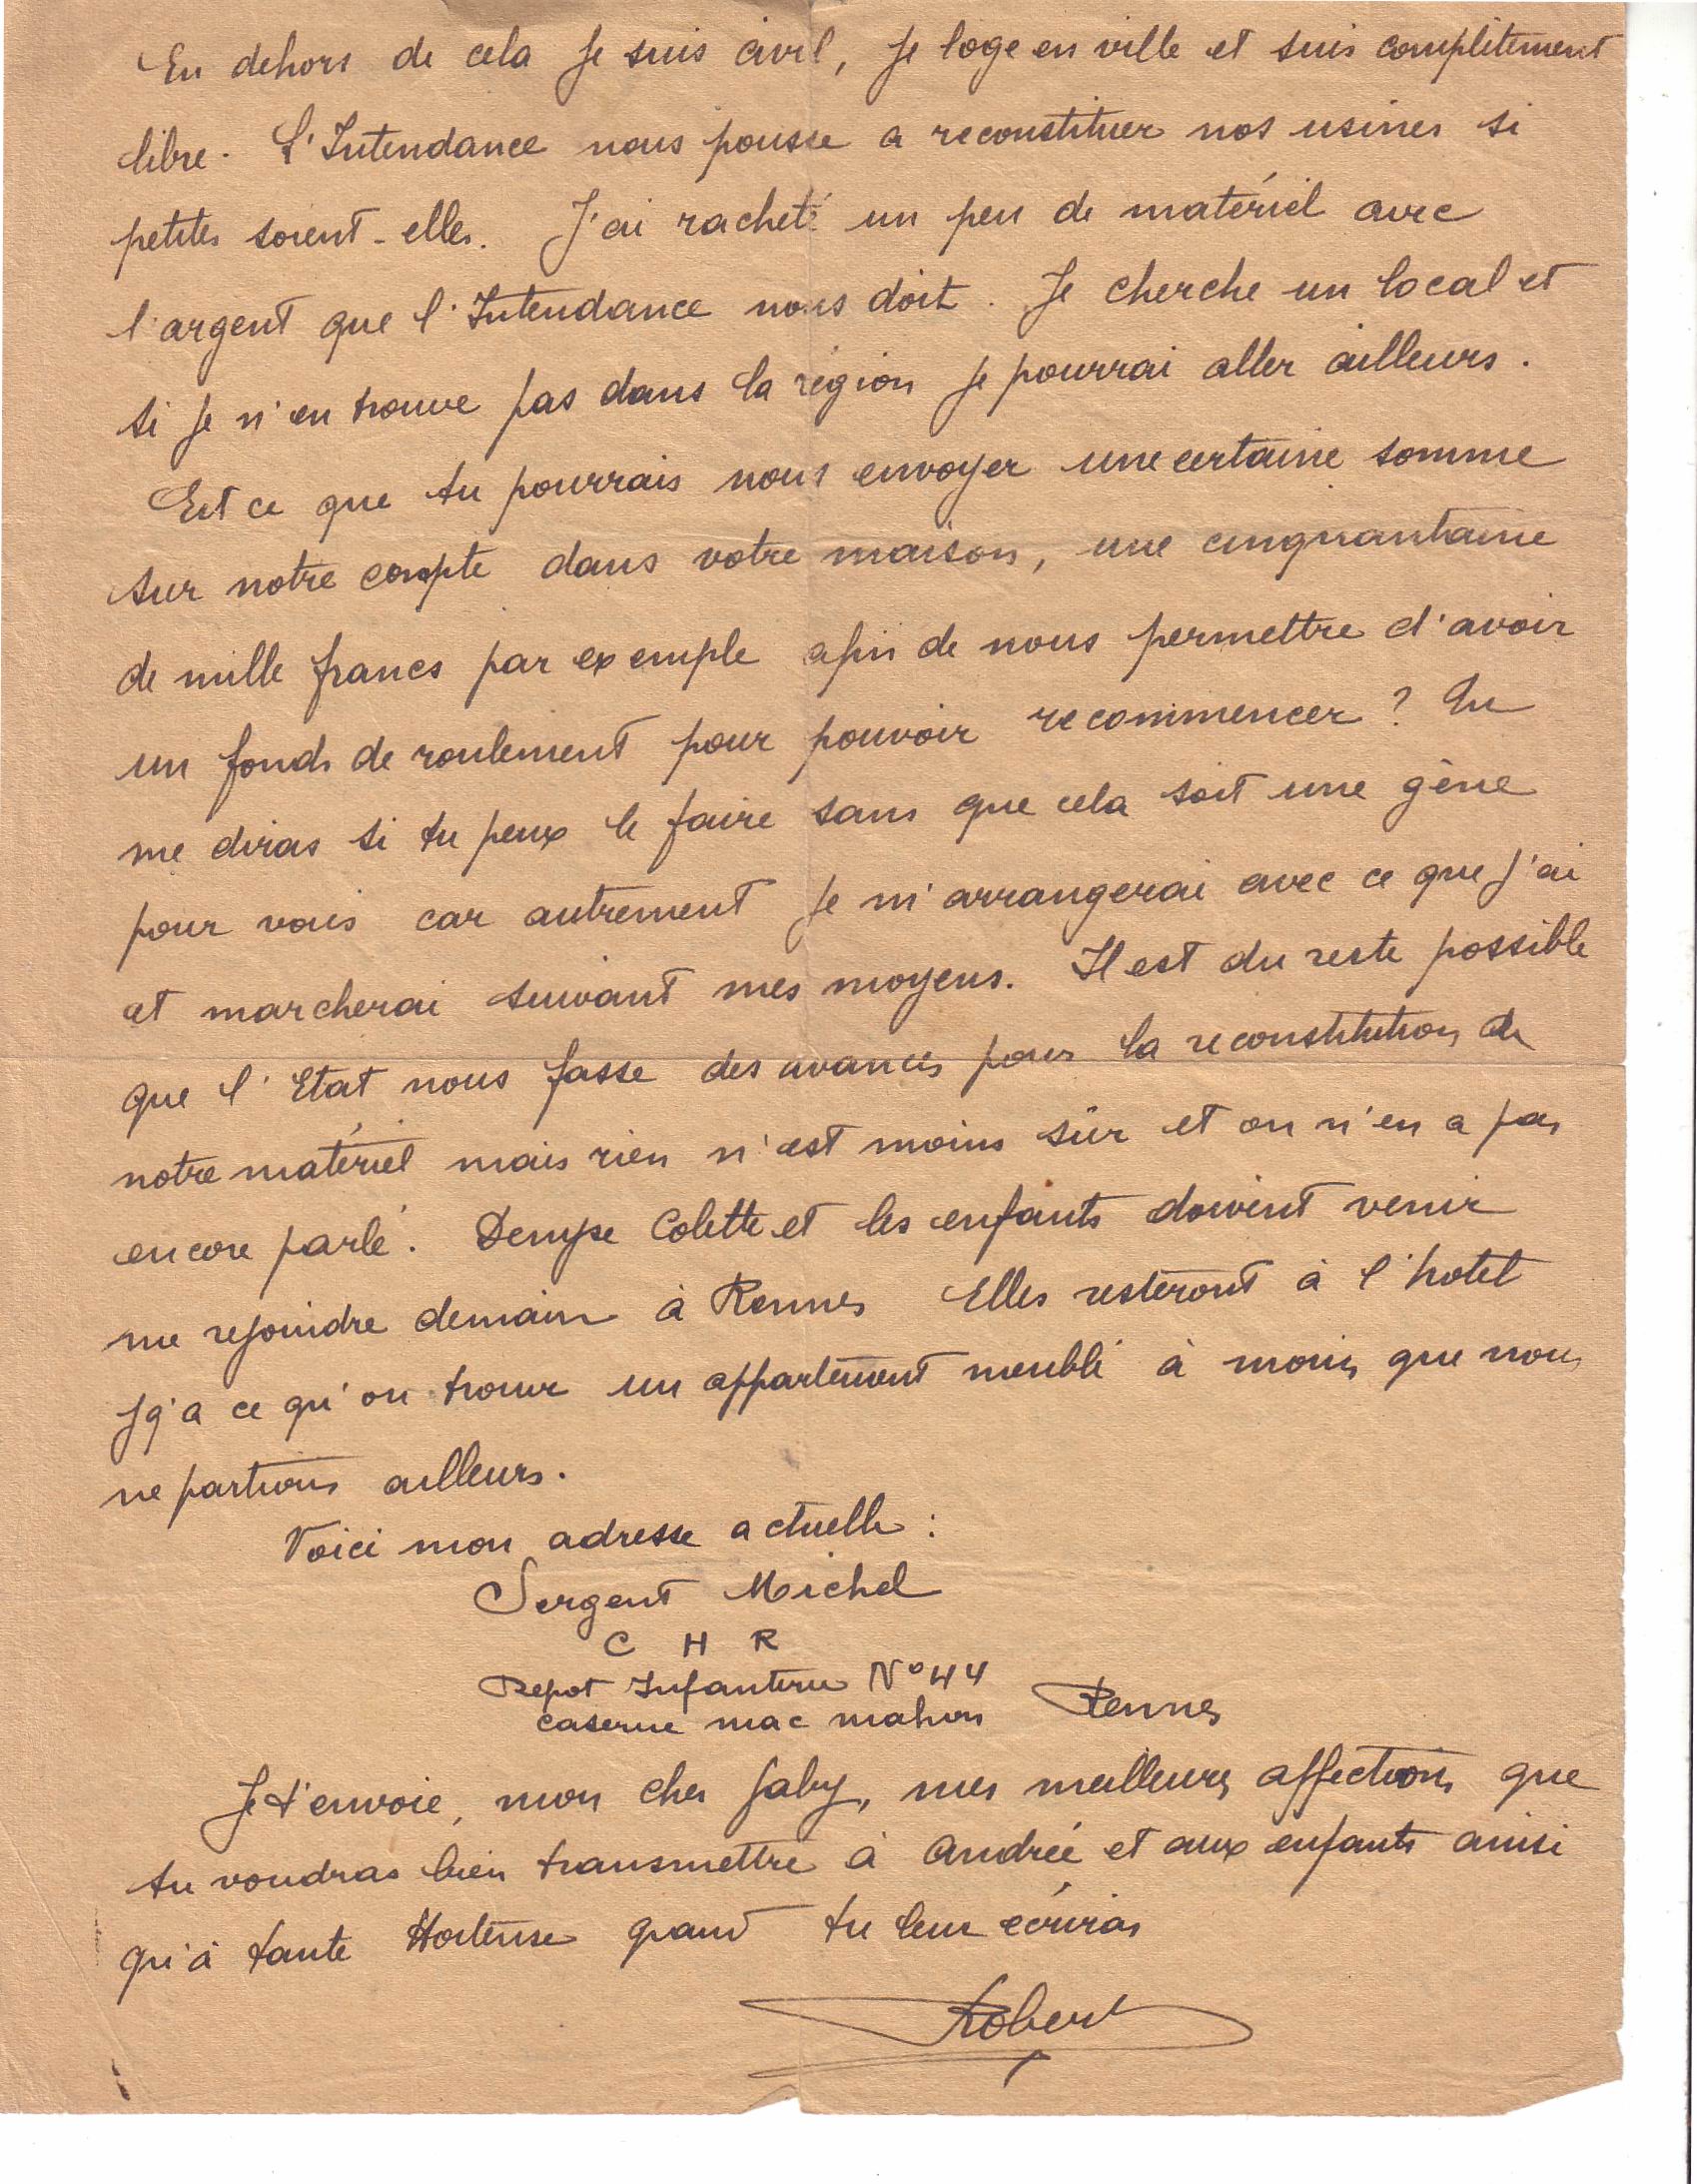 En dehors de cela je suis civil, je loge en ville et suis complètement
libre. L'Intendance nous pousse a reconstituer nos usines si
petites soient-elles. J'ai racheté un peu de matériel avec
l'argent que l'Intendance nous doit. Je cherche un local et
si je n'en trouve pas dans la région je pourrai aller ailleurs.
Est ce que tu pourrais nous envoyer une certaine somme
sur notre compte dans votre maison, une cinquantaine
de mille francs par exemple afin de nous permettre d'avoir
un fonds de roulement pour pouvoir recommencer ? Tu
me diras si tu peux le faire sans que cela soit une gène
pour vous car autrement je m'arrangerai avec ce que j'ai
et marcherai suivant mes moyens. Il est du reste possible
que l'Etat nous fasse des avances pour la reconstitution de
notre matériel mais rien n'est moins sûr et on n'en a pas
encore parlé. Denyse Colette et les enfants doivent venir
me rejoindre demain à Rennes Elles resteront à l'hotel
jq'a ce qu'on trouve un appartement meublé à moins que nous
ne partions ailleurs.
Voici mon adresse actuelle :
Sergent Michel
C H R
Depot Infanterie N°44
caserne mac mahon Rennes
Je t'envoie, mon cher Gaby, mes meilleures affections que
tu voudras bien transmettre à Andrée et aux enfants ainsi
qu'à tante Hortense quand tu leur écriras
Robert